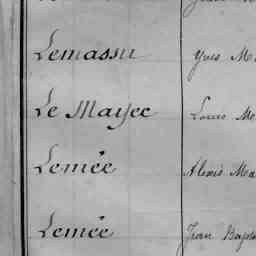 Lemassu Yves M
Le Mayec Louis M
Lemée Alexis Ma
Lemée Jean Bap